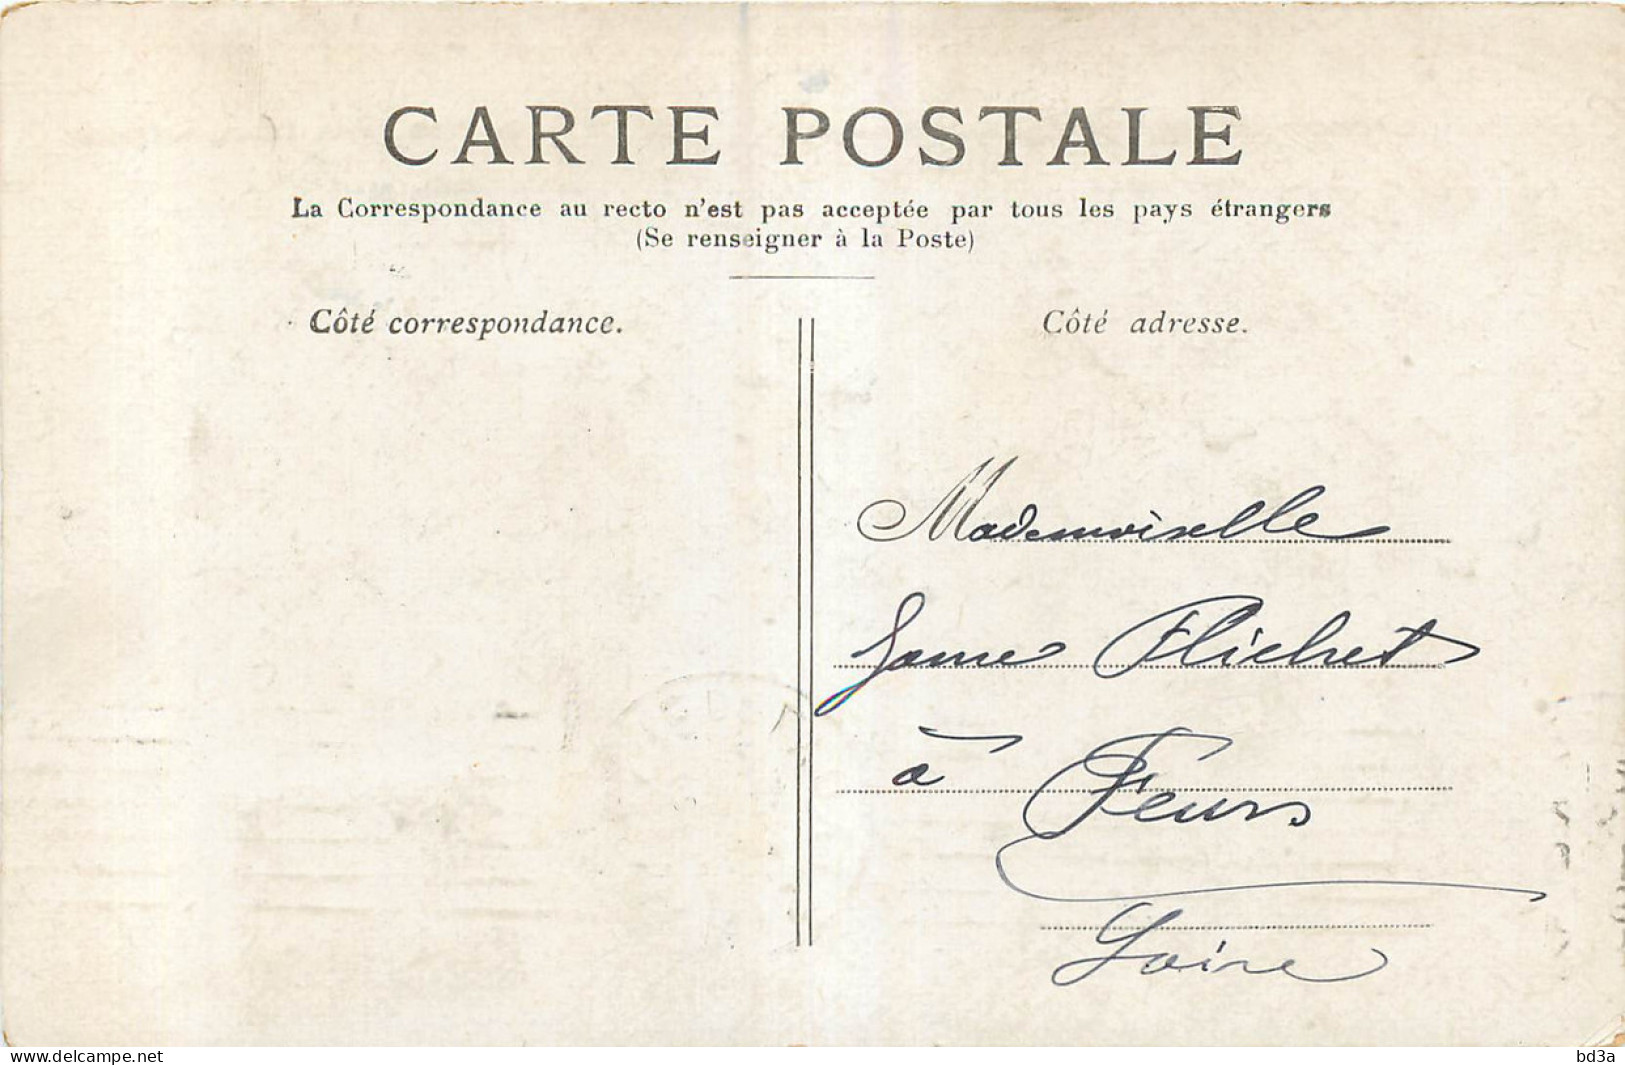 CARTE POSTALE
La Correspondance au recto n'est pas acceptée par tous les pays étrangers
(Se renseigner à la Poste)
Côté correspondance.
Côté adresse.
Mademoiselle
Flichet
à Feurs
Loire
www.delcampe.net
bd3a